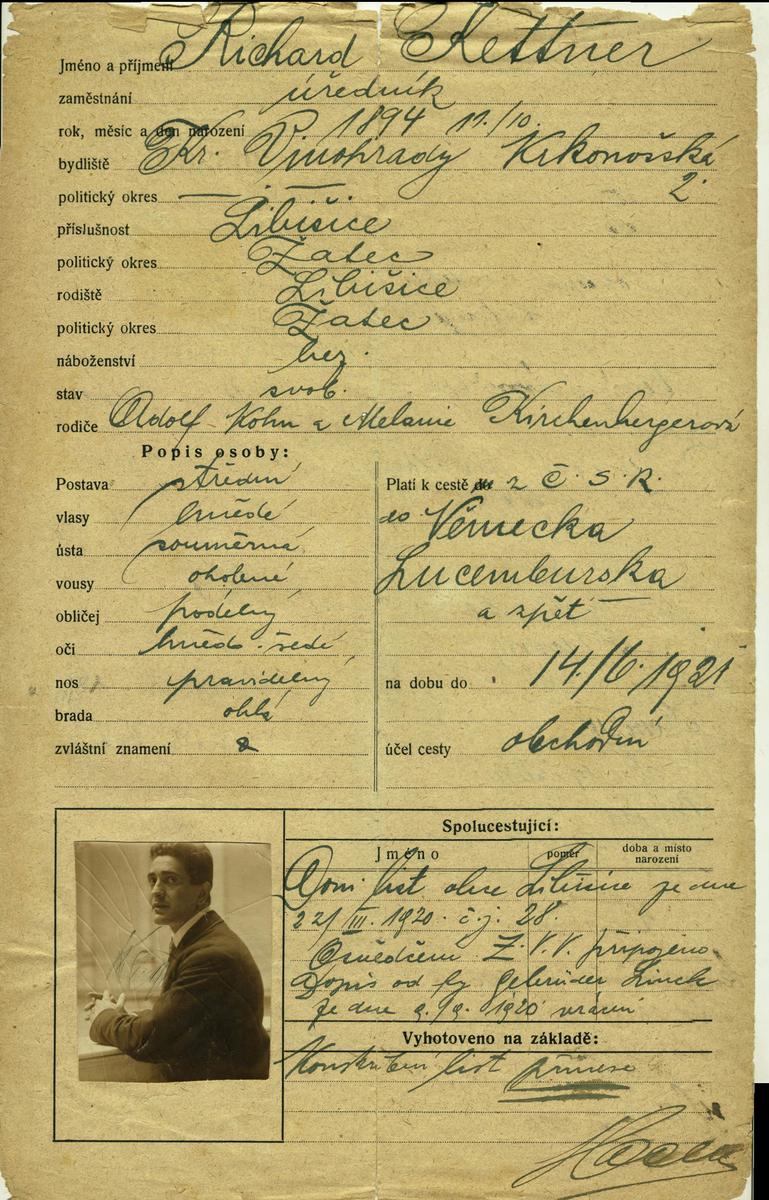 Jméno a příjmení Richard Kettner
zaměstnání úředník
rok, měsíc a den narození 1894 11./10.
bydliště Kr. Vinohrady Krkonošská
2.
politický okres — . —
příslušnost Libišice
politický okres Žatec
rodiště Libišice
politický okres Žatec
náboženství bez.
stav svob.
rodiče Adolf Kohn a Melanie Kirchenbergerová
Popis osoby:
Postava střední
vlasy hnědé
ústa souměrná
vousy oholené
obličej podélný
oči hnědo-šedé
nos pravidelný
brada oblá
zvláštní znamení
Platí k cestě do z Č. S. R.
do Německa
Lucemburska
a zpět
na dobu do 14./6. 1921
účel cesty obchodní
Spolucestující:
Jméno poměr doba a místo narození
Dom. list obce Libišice ze dne
22/III. 1920 č.j. 28.
Osvědčení Z. V. V. připojeno.
Dopis od fy Gebrüder Linck
ze dne 9./9. 1920 vrácen
Vyhotoveno na základě:
Konskribční list přinese